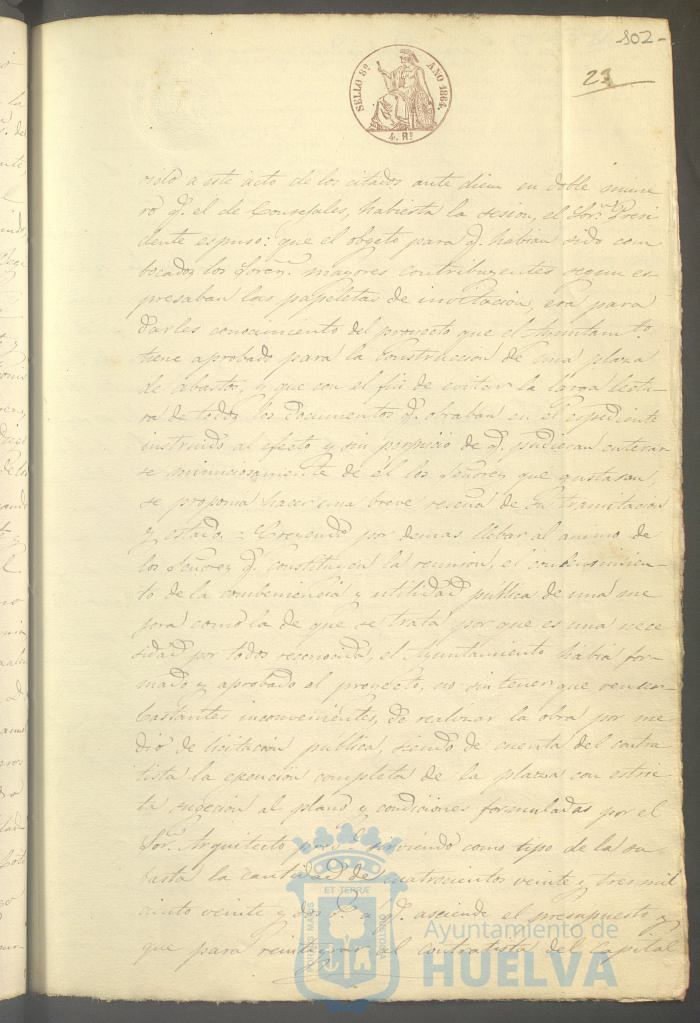 102-
23
SELLO 8º AÑO 1864.
4. Rˢ
a este acto de los citados ante diem en doble nume
ro q. el de Consejales, habierta la sesion, el Sor. Presi
dente espuso: que el objeto para q. habian sido com
bocados los Sores. mayores contribuyentes segun es
presaban las papeletas de invitacion, era para
darles conocimiento del proyecto que el Ayuntamto.
tiene aprobado para la construccion de una plaza
de abastos; y que con el fin de evitar la larga lectu
ra de todos los documentos q. obraban en el espediente
instruido al efecto y sin perjuicio de q. pudieran enterar
se minuciosamente de él los Señores que gustasen,
se proponia hacer una breve reseña de su tramitacion
y estado. = Creyendo por demas llebar al animo de
los Señores q. constituyen la reunion, el
to de la combeniencia y utilidad publica de una me
jora como la de que se trata por que es una nece
sidad por todos reconocida, el Ayuntamiento habia for-
mado y aprobado el proyecto, no sin tener que vencer
bastantes inconvenientes, de realizar la obra por me
dio de licitacion pública, siendo de cuenta del contra
tista la ejecucion completa de la plaza con estric
ta sugecion al plano y condiciones formuladas por el
Sor. Arquitecto sirviendo como tipo de la su
basta la cantidad de cuatrocientos veinte y tres mil
ciento veinte y dos rs. a q. asciende el presupuesto y
que para reintegrar al contratista del capital
PORTUS MARIS ET TERRÆ CUSTODIA
Ayuntamiento de
HUELVA